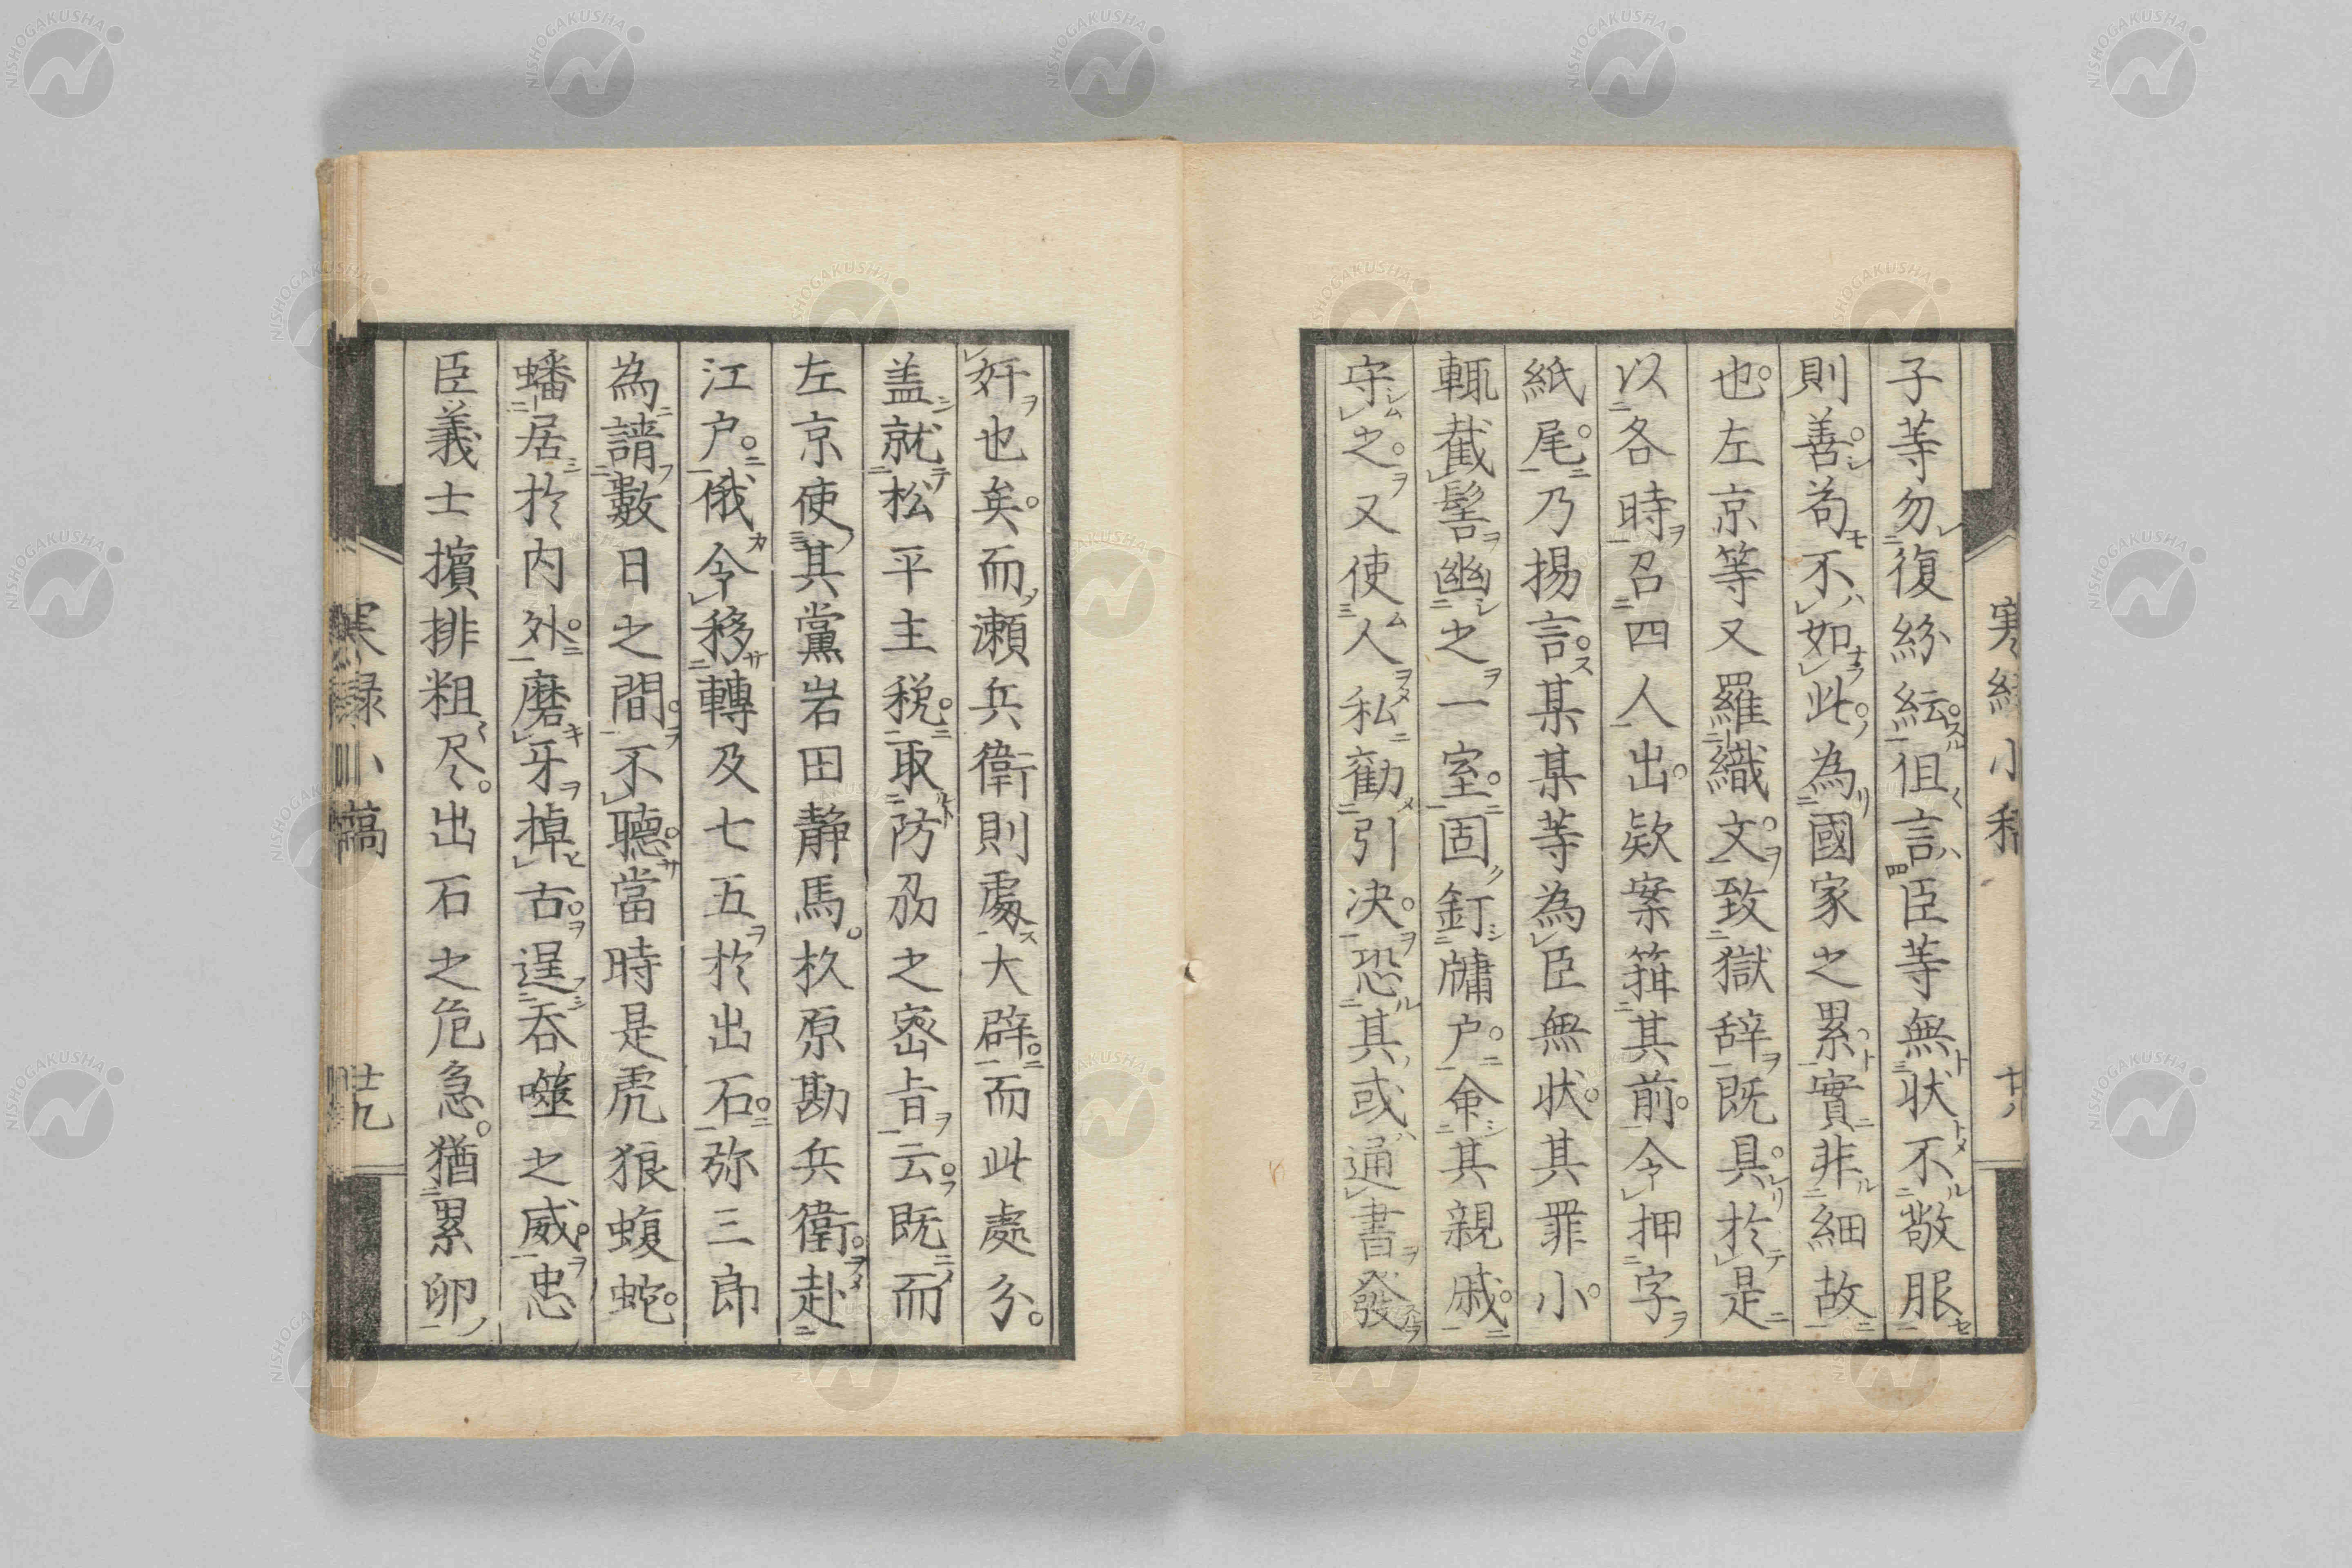 子等勿復紛紜。但言臣等無状不敬服
則善。苟不如此。為國家之累。實非細故
也。左京等又羅織文。致獄辞既具。於是
以各時召四人出。欵案箝其前。令押字
紙尾。乃揚言。某某等為臣無状。其罪小。
輙截髻幽之一室。固釘牗户。命其親戚。
守之。又使人私勸引决。恐其或通書發
奸也矣。而瀬兵衛則處大辟。而此處分。
盖就松平主税。取防刕之密旨云。既而
左京使其黨岩田静馬。杉原勘兵衛。赴
江户。俄令移轉及七五於出石。弥三郎
為請數日之間。不聽。當時是虎狼蝮蛇。
蟠居於内外。磨牙掉古。逞呑噬之威。忠
臣義士擯排粗尽。出石之危急。猶累卵
小稿
十九
NISHOGAKUSHA